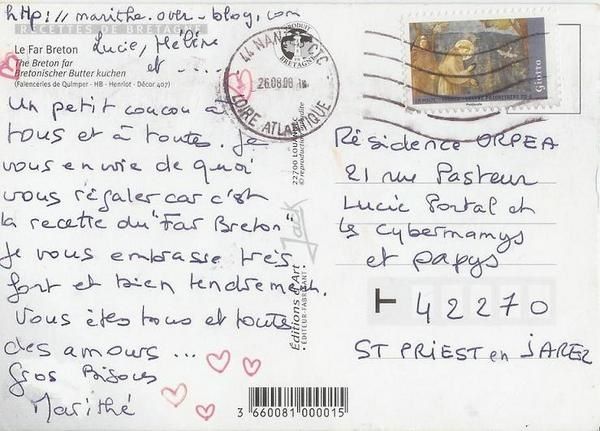 http://marithe.over-blog.com
RECETTES DE BRETAGNE
Le Far Breton
The Breton far
Bretonischer Butter kuchen
(Faïenceries de Quimper - HB - Henriot - Décor 407)
Lucie, Hélène
et ....
Un petit coucou à
tous et à toutes. Je
vous envie de quoi
vous régaler car c'est
la recette du "Far Breton"
Je vous embrasse très
fort et bien tendrement.
Vous êtes tous et toutes
des amours ...
Gros Bisous
Marithé
PRODUIT
BRETAGNE
44 NANTES CTC
26.08.08
LOIRE ATLANTIQUE
Giotto
22700 LOUANNEC
© reproduction
Jack
Editions d'Art
- ÉDITEUR-FABRICANT -
Résidence ORPEA
21 rue Pasteur
Lucie Portal et
les Cybermamys
et papys
T 42270
ST PRIEST en JAREZ
3 660081 000015